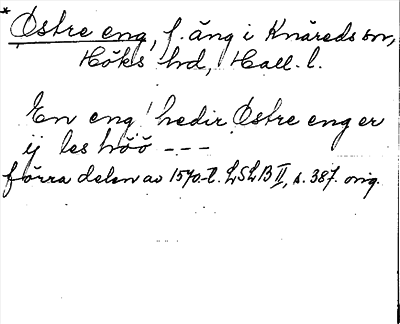 * Østre eng, f. äng i Knäreds sn,
Höks hd, Hall. l.
En eng hedir Østre eng er
ij les höö ---
förra delen av 1570-t. LSLB II, s. 387. orig.